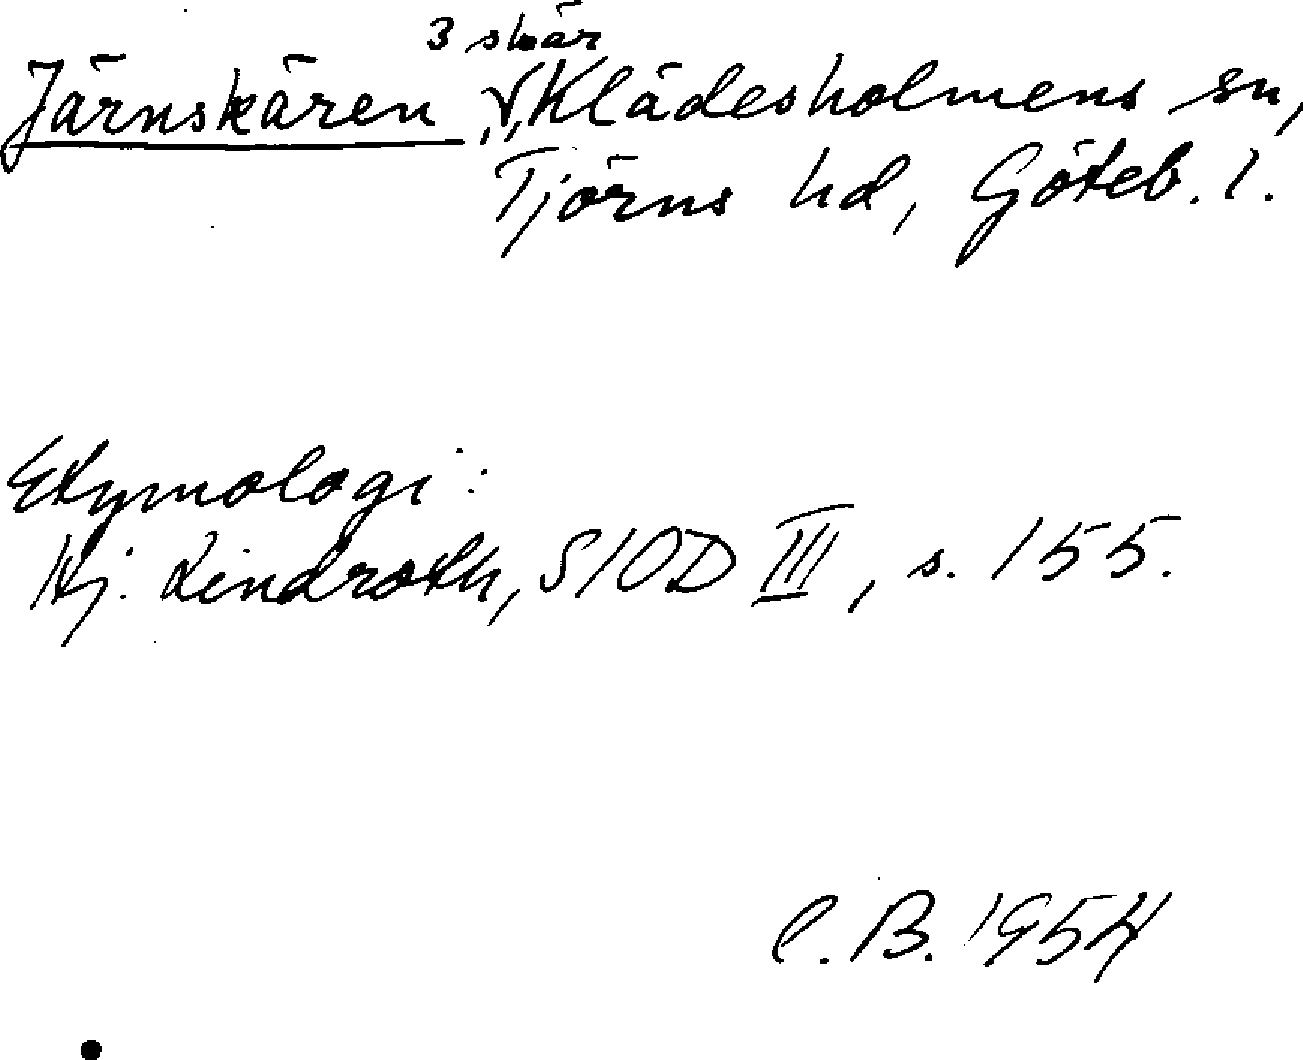 3 skär
Järnskären, Klädesholmens sn,
Tjörns hd, Göteb. l.
Etymologi:
Hj. Lindroth, SIOD III, s. 155.
C. B. 1954